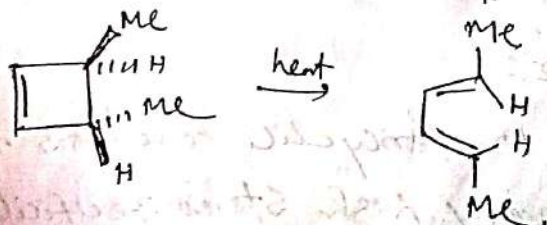 Me
Me
H
heat
Me
H
H
H
Me